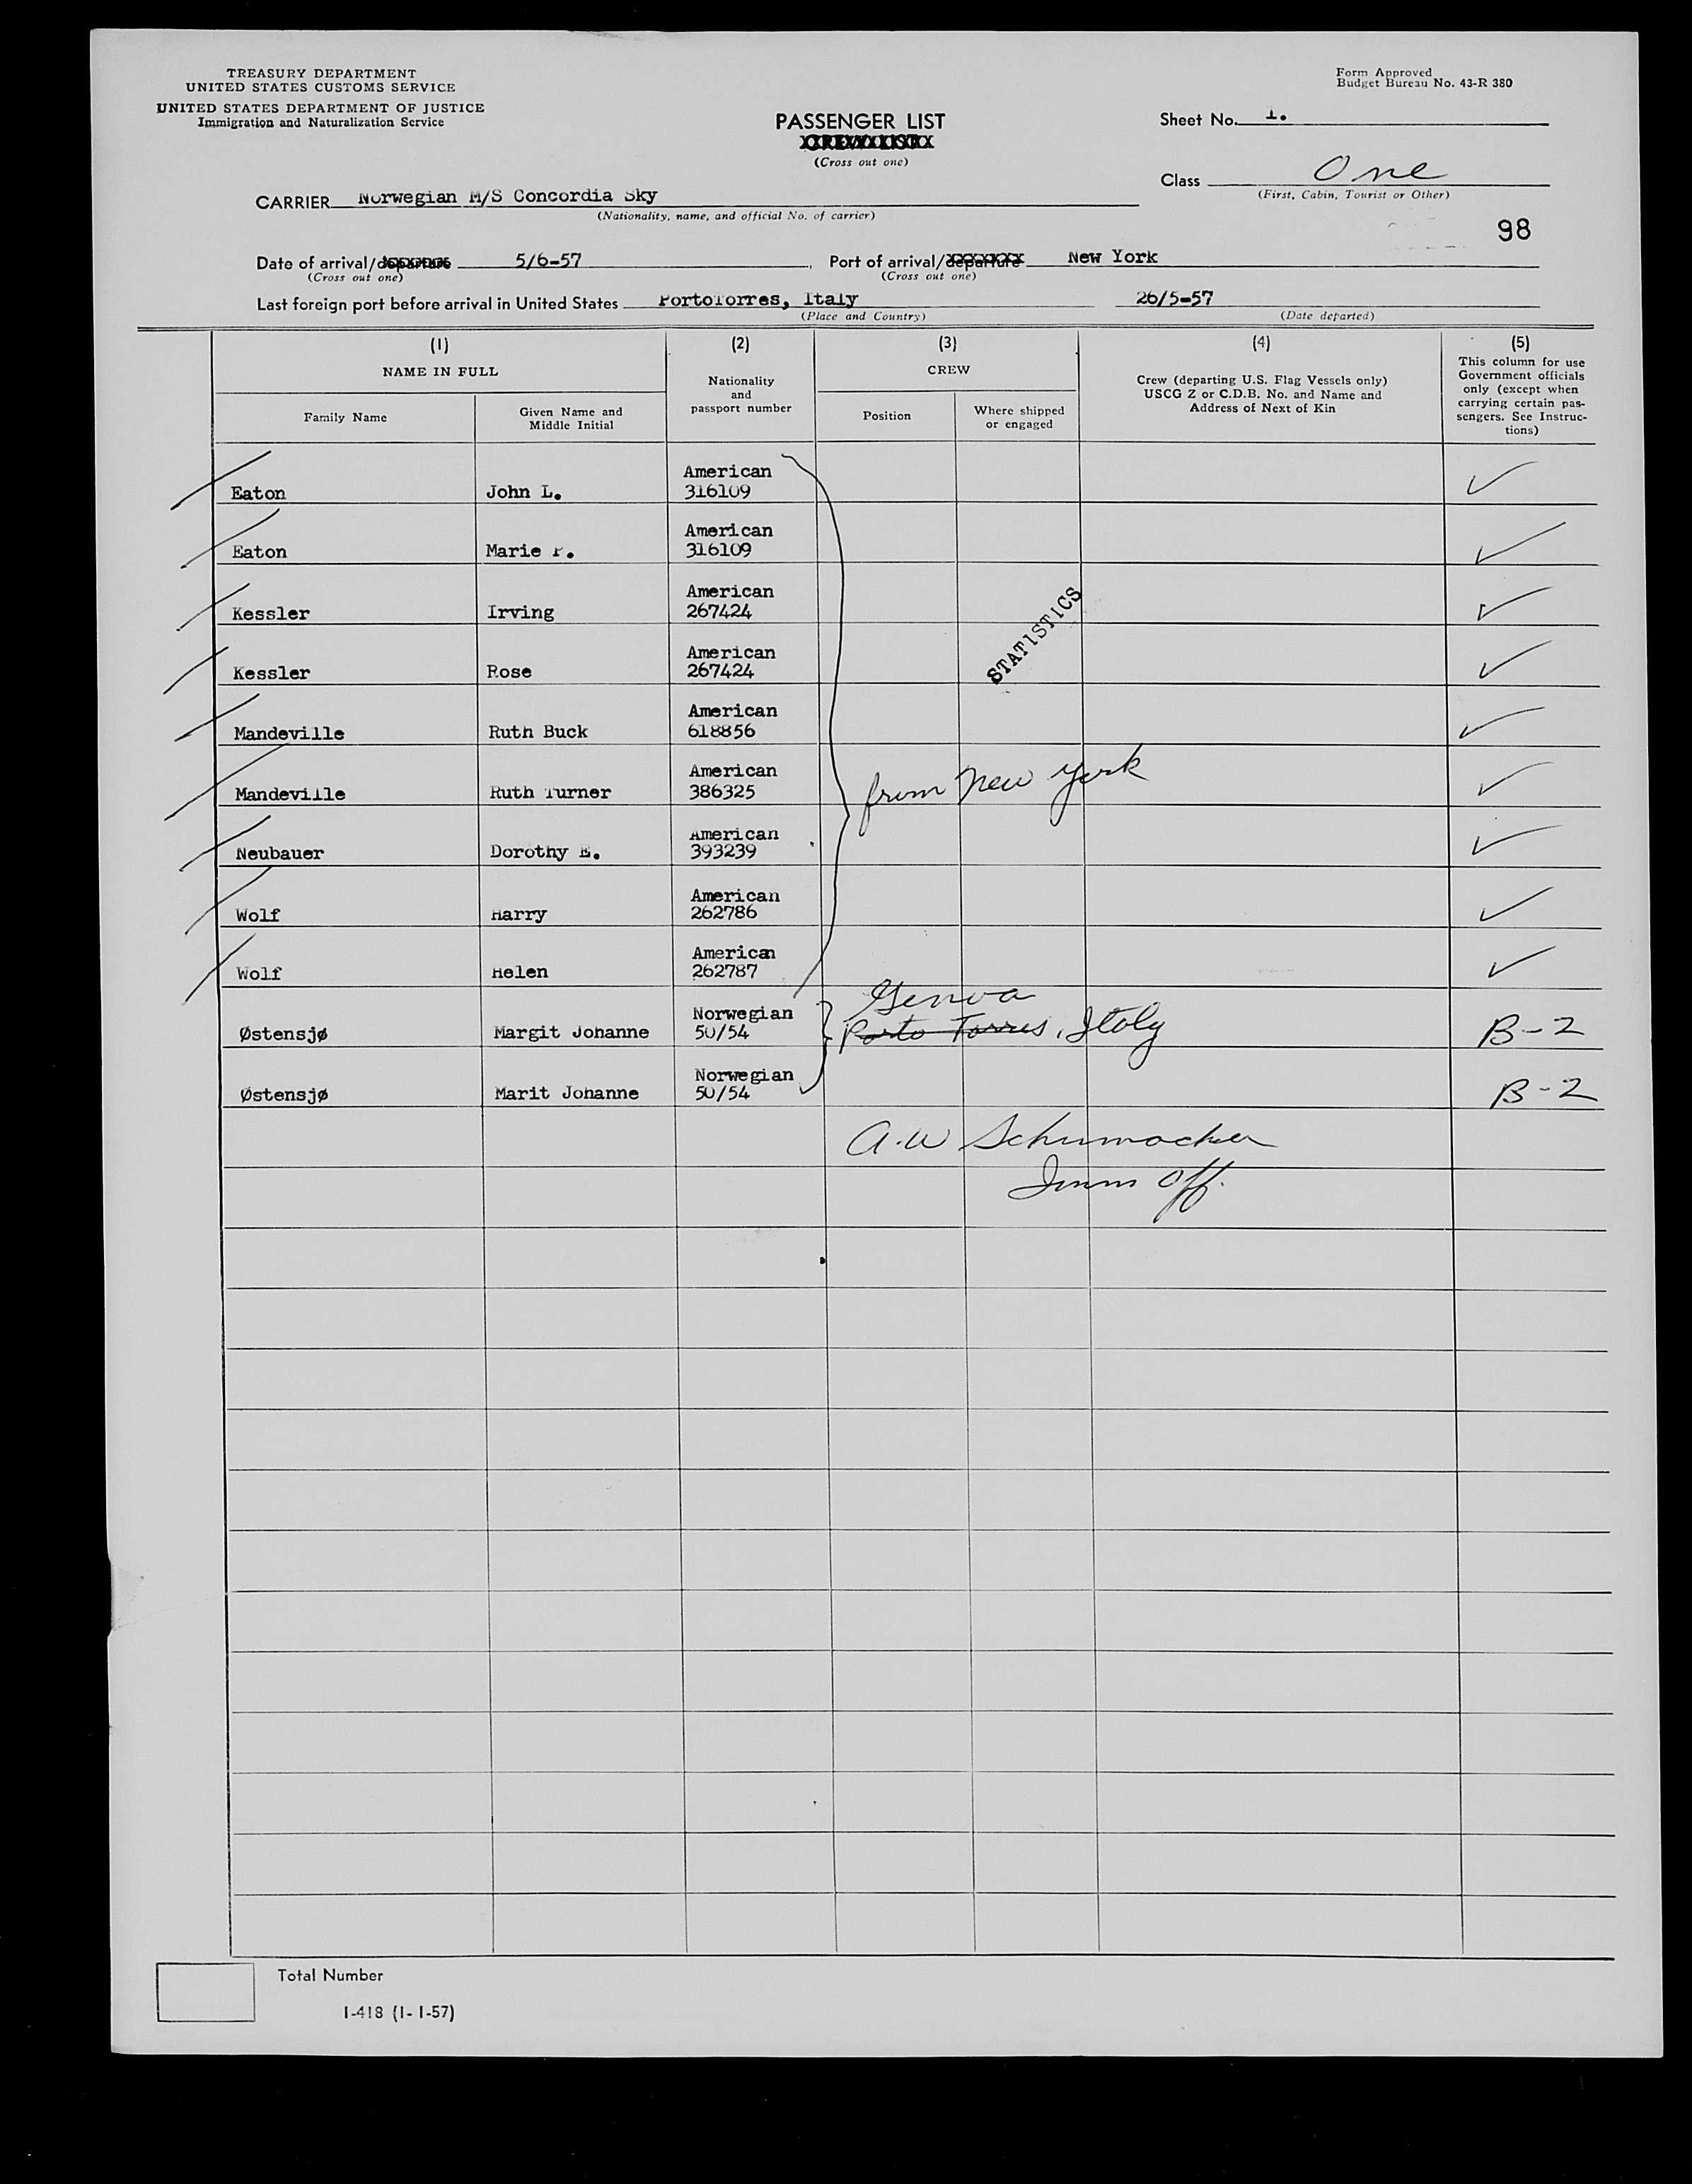 TREASURY DEPARTMENT
UNITED STATES CUSTOMS SERVICE
UNITED STATES DEPARTMENT OF JUSTICE
Immigration and Naturalization Service
Form Approved
Budget Bureau No. 43-R 380
PASSENGER LIST
CREW LIST
(Cross out one)
Sheet No. 1.
Class One
(First, Cabin, Tourist or Other)
CARRIER Norwegian M/S Concordia Sky
(Nationality, name, and official No. of carrier)
98
Date of arrival/departure 5/6-57, Port of arrival/departure New York
(Cross out one) (Cross out one)
Last foreign port before arrival in United States PortoTorres, Italy 26/5-57
(Place and Country) (Date departed)
(1) (2) (3) (4) (5)
NAME IN FULL
Family Name
Given Name and
Middle Initial
Nationality
and
passport number
CREW
Position
Where shipped
or engaged
Crew (departing U.S. Flag Vessels only)
USCG Z or C.D.B. No. and Name and
Address of Next of Kin
This column for use
Government officials
only (except when
carrying certain pas-
sengers. See Instruc-
tions)
American
Eaton John L. 316109
American
Eaton Marie P. 316109
American
Kessler Irving 267424
STATISTICS
American
Kessler Rose 267424
American
Mandeville Ruth Buck 618856
American
Mandeville Ruth Turner 386325
from New York
American
Neubauer Dorothy E. 393239
American
Wolf Harry 262786
American
Wolf Helen 262787
Genoa
Norwegian
Østensjø Margit Johanne 50/54 Porto Torres, Italy B-2
Norwegian
Østensjø Marit Johanne 50/54 B-2
A.W Schumacher
Imm Off.
Total Number
I-418 (1-1-57)